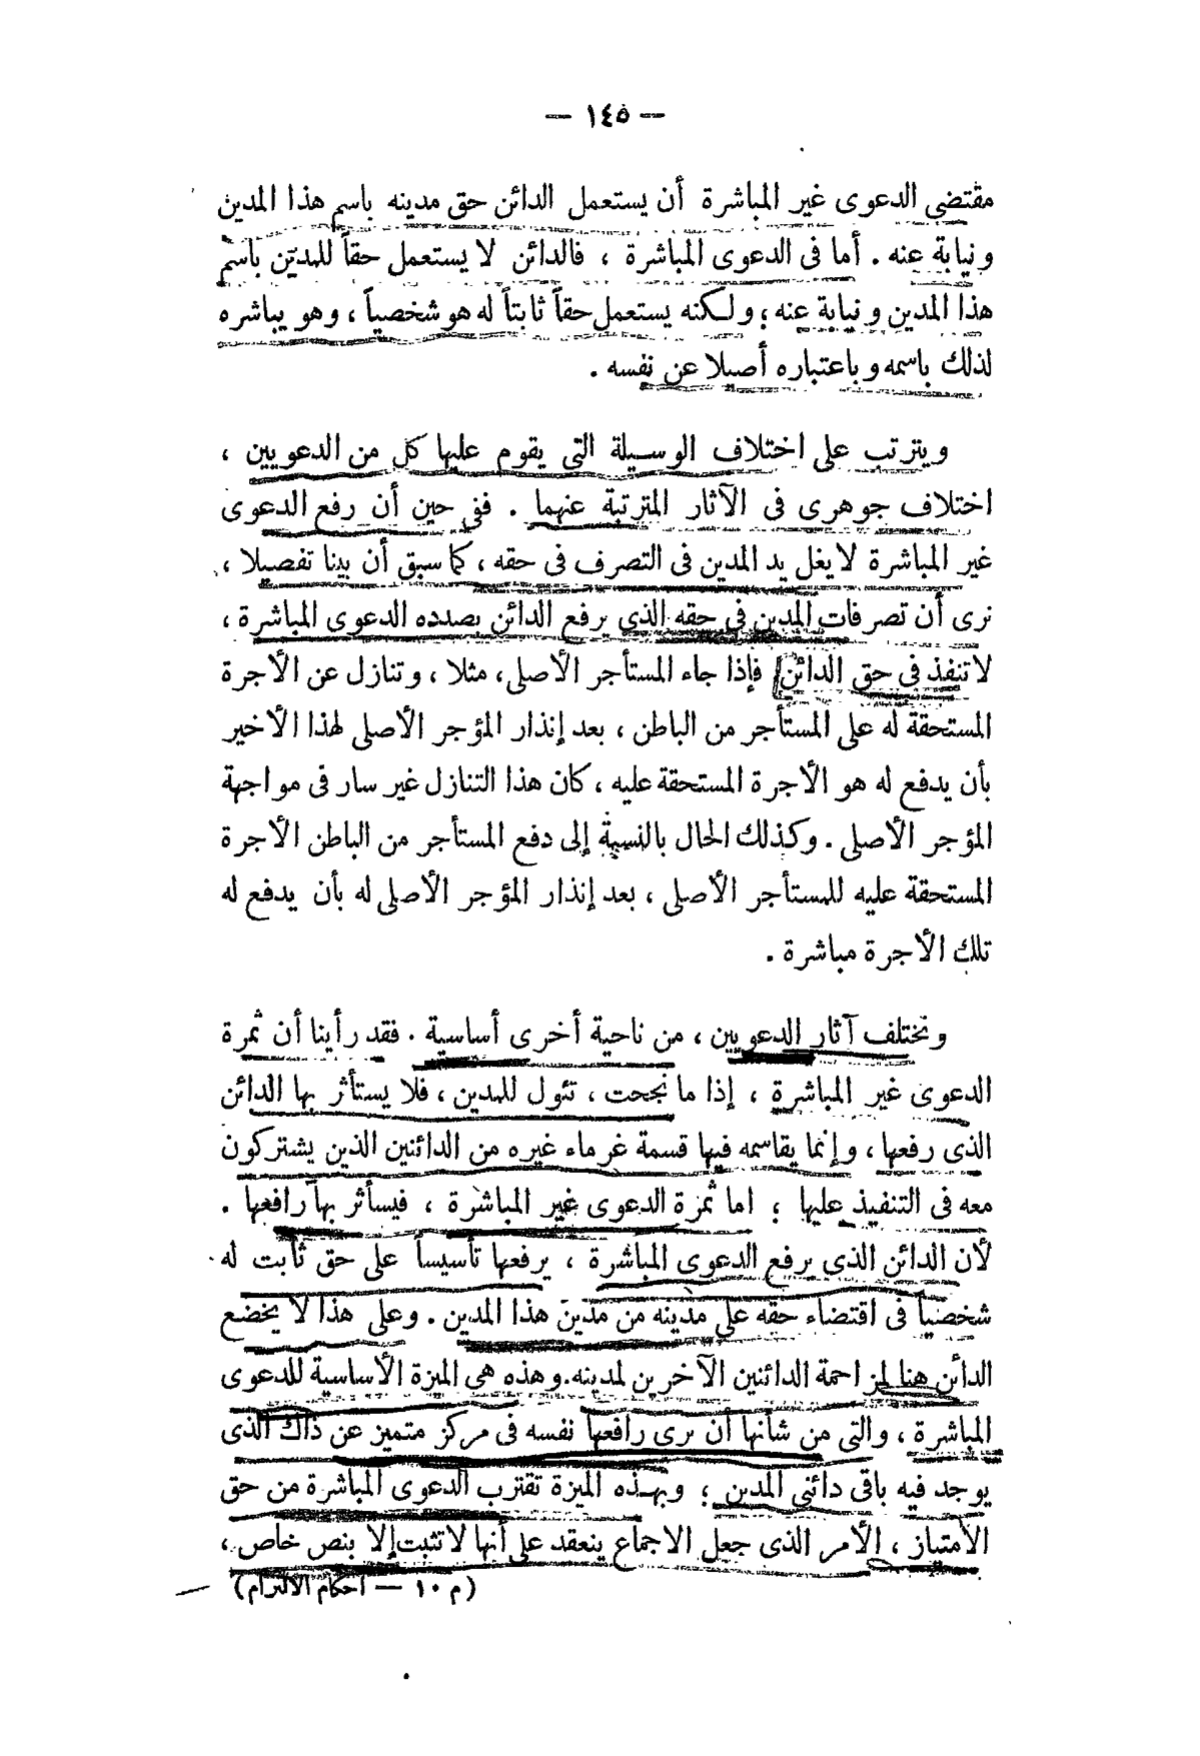 — ١٤٥ —
مقتضى الدعوى غير المباشرة أن يستعمل الدائن حق مدينه باسم هذا المدين
ونيابة عنه . أما فى الدعوى المباشرة ، فالدائن لا يستعمل حقاً للمدين باسم
هذا المدين ونيابة عنه ؛ ولكنه يستعمل حقاً ثابتاً له هو شخصياً ، وهو يباشره
لذلك باسمه وباعتباره أصيلا عن نفسه .
ويترتب على اختلاف الوسيلة التى يقوم عليها كل من الدعويين ،
اختلاف جوهرى فى الآثار المترتبة عنهما . ففى حين أن رفع الدعوى
غير المباشرة لا يغل يد المدين فى التصرف فى حقه ، كما سبق أن بينا تفصيلا ،
نرى أن تصرفات المدين فى حقه الذى يرفع الدائن بصدده الدعوى المباشرة ،
لا تنفذ فى حق الدائن] فإذا جاء المستأجر الأصلى ، مثلا ، وتنازل عن الأجرة
المستحقة له على المستأجر من الباطن ، بعد إنذار المؤجر الأصلى لهذا الأخير
بأن يدفع له هو الأجرة المستحقة عليه ، كان هذا التنازل غير سار فى مواجهة
المؤجر الأصلى . وكذلك الحال بالنسبة إلى دفع المستأجر من الباطن الأجرة
المستحقة عليه للمستأجر الأصلى ، بعد إنذار المؤجر الأصلى له بأن يدفع له
تلك الأجرة مباشرة .
وتختلف آثار الدعويين ، من ناحية أخرى أساسية . فقد رأينا أن ثمرة
الدعوى غير المباشرة ، إذا ما نجحت ، تئول للمدين ، فلا يستأثر بها الدائن
الذى رفعها ، وإنما يقاسمه فيها قسمة غرماء غيره من الدائنين الذين يشتركون
معه فى التنفيذ عليها ؛ اما ثمرة الدعوى غير المباشرة ، فيسأثر بها رافعها .
لأن الدائن الذى يرفع الدعوى المباشرة ، يرفعها تأسيساً على حق ثابت له
شخصياً فى اقتضاء حقه على مدينه من مدين هذا المدين . وعلى هذا لا يخضع
الدائن هنا لمزاحمة الدائنين الآخرين لمدينه . وهذه هى الميزة الأساسية للدعوى
المباشرة ، والتى من شأنها أن يرى رافعها نفسه فى مركز متميز عن ذاك الذى
يوجد فيه باقى دائنى المدين ؛ وبهذه الميزة تقترب الدعوى المباشرة من حق
الامتياز ، الأمر الذى جعل الاجماع ينعقد على أنها لا تثبت إلا بنص خاص ،
(م ١٠ — أحكام الالتزام)